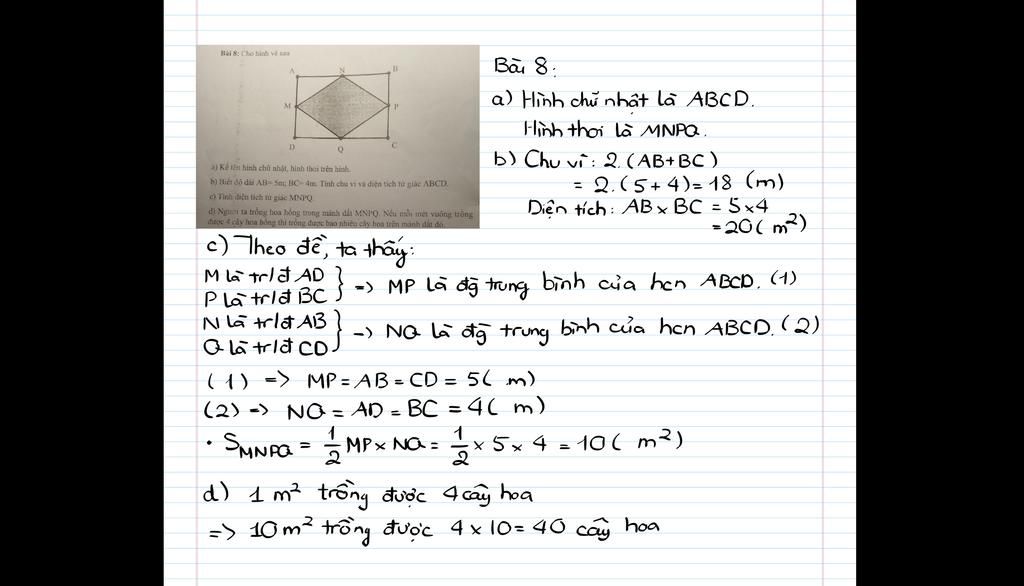 Bài 8: Cho hình vẽ sau
A N B
M P
D Q C
a) Kể tên hình chữ nhật, hình thoi trên hình.
b) Biết độ dài AB= 5m; BC= 4m. Tính chu vi và diện tích tứ giác ABCD.
c) Tính diện tích tứ giác MNPQ.
d) Người ta trồng hoa hồng trong mảnh đất MNPQ. Nếu mỗi mét vuông trồng
được 4 cây hoa hồng thì trồng được bao nhiêu cây hoa trên mảnh đất đó.
Bài 8:
a) Hình chữ nhật là ABCD.
Hình thoi là MNPQ.
b) Chu vi: 2.(AB+BC)
= 2.(5+4)=18 (m)
Diện tích: AB x BC = 5x4
=20( m²)
c) Theo đề, ta thấy:
M là tr/đ AD
P là tr/đ BC } => MP là đg trung bình của hcn ABCD. (1)
N là tr/đ AB
Q là tr/đ CD } => NQ là đg trung bình của hcn ABCD. (2)
(1) => MP = AB = CD = 5( m)
(2) => NQ = AD = BC = 4( m)
• S_MNPQ = 1/2 MP x NQ = 1/2 x 5 x 4 = 10( m²)
d) 1 m² trồng được 4 cây hoa
=> 10 m² trồng được 4 x 10 = 40 cây hoa